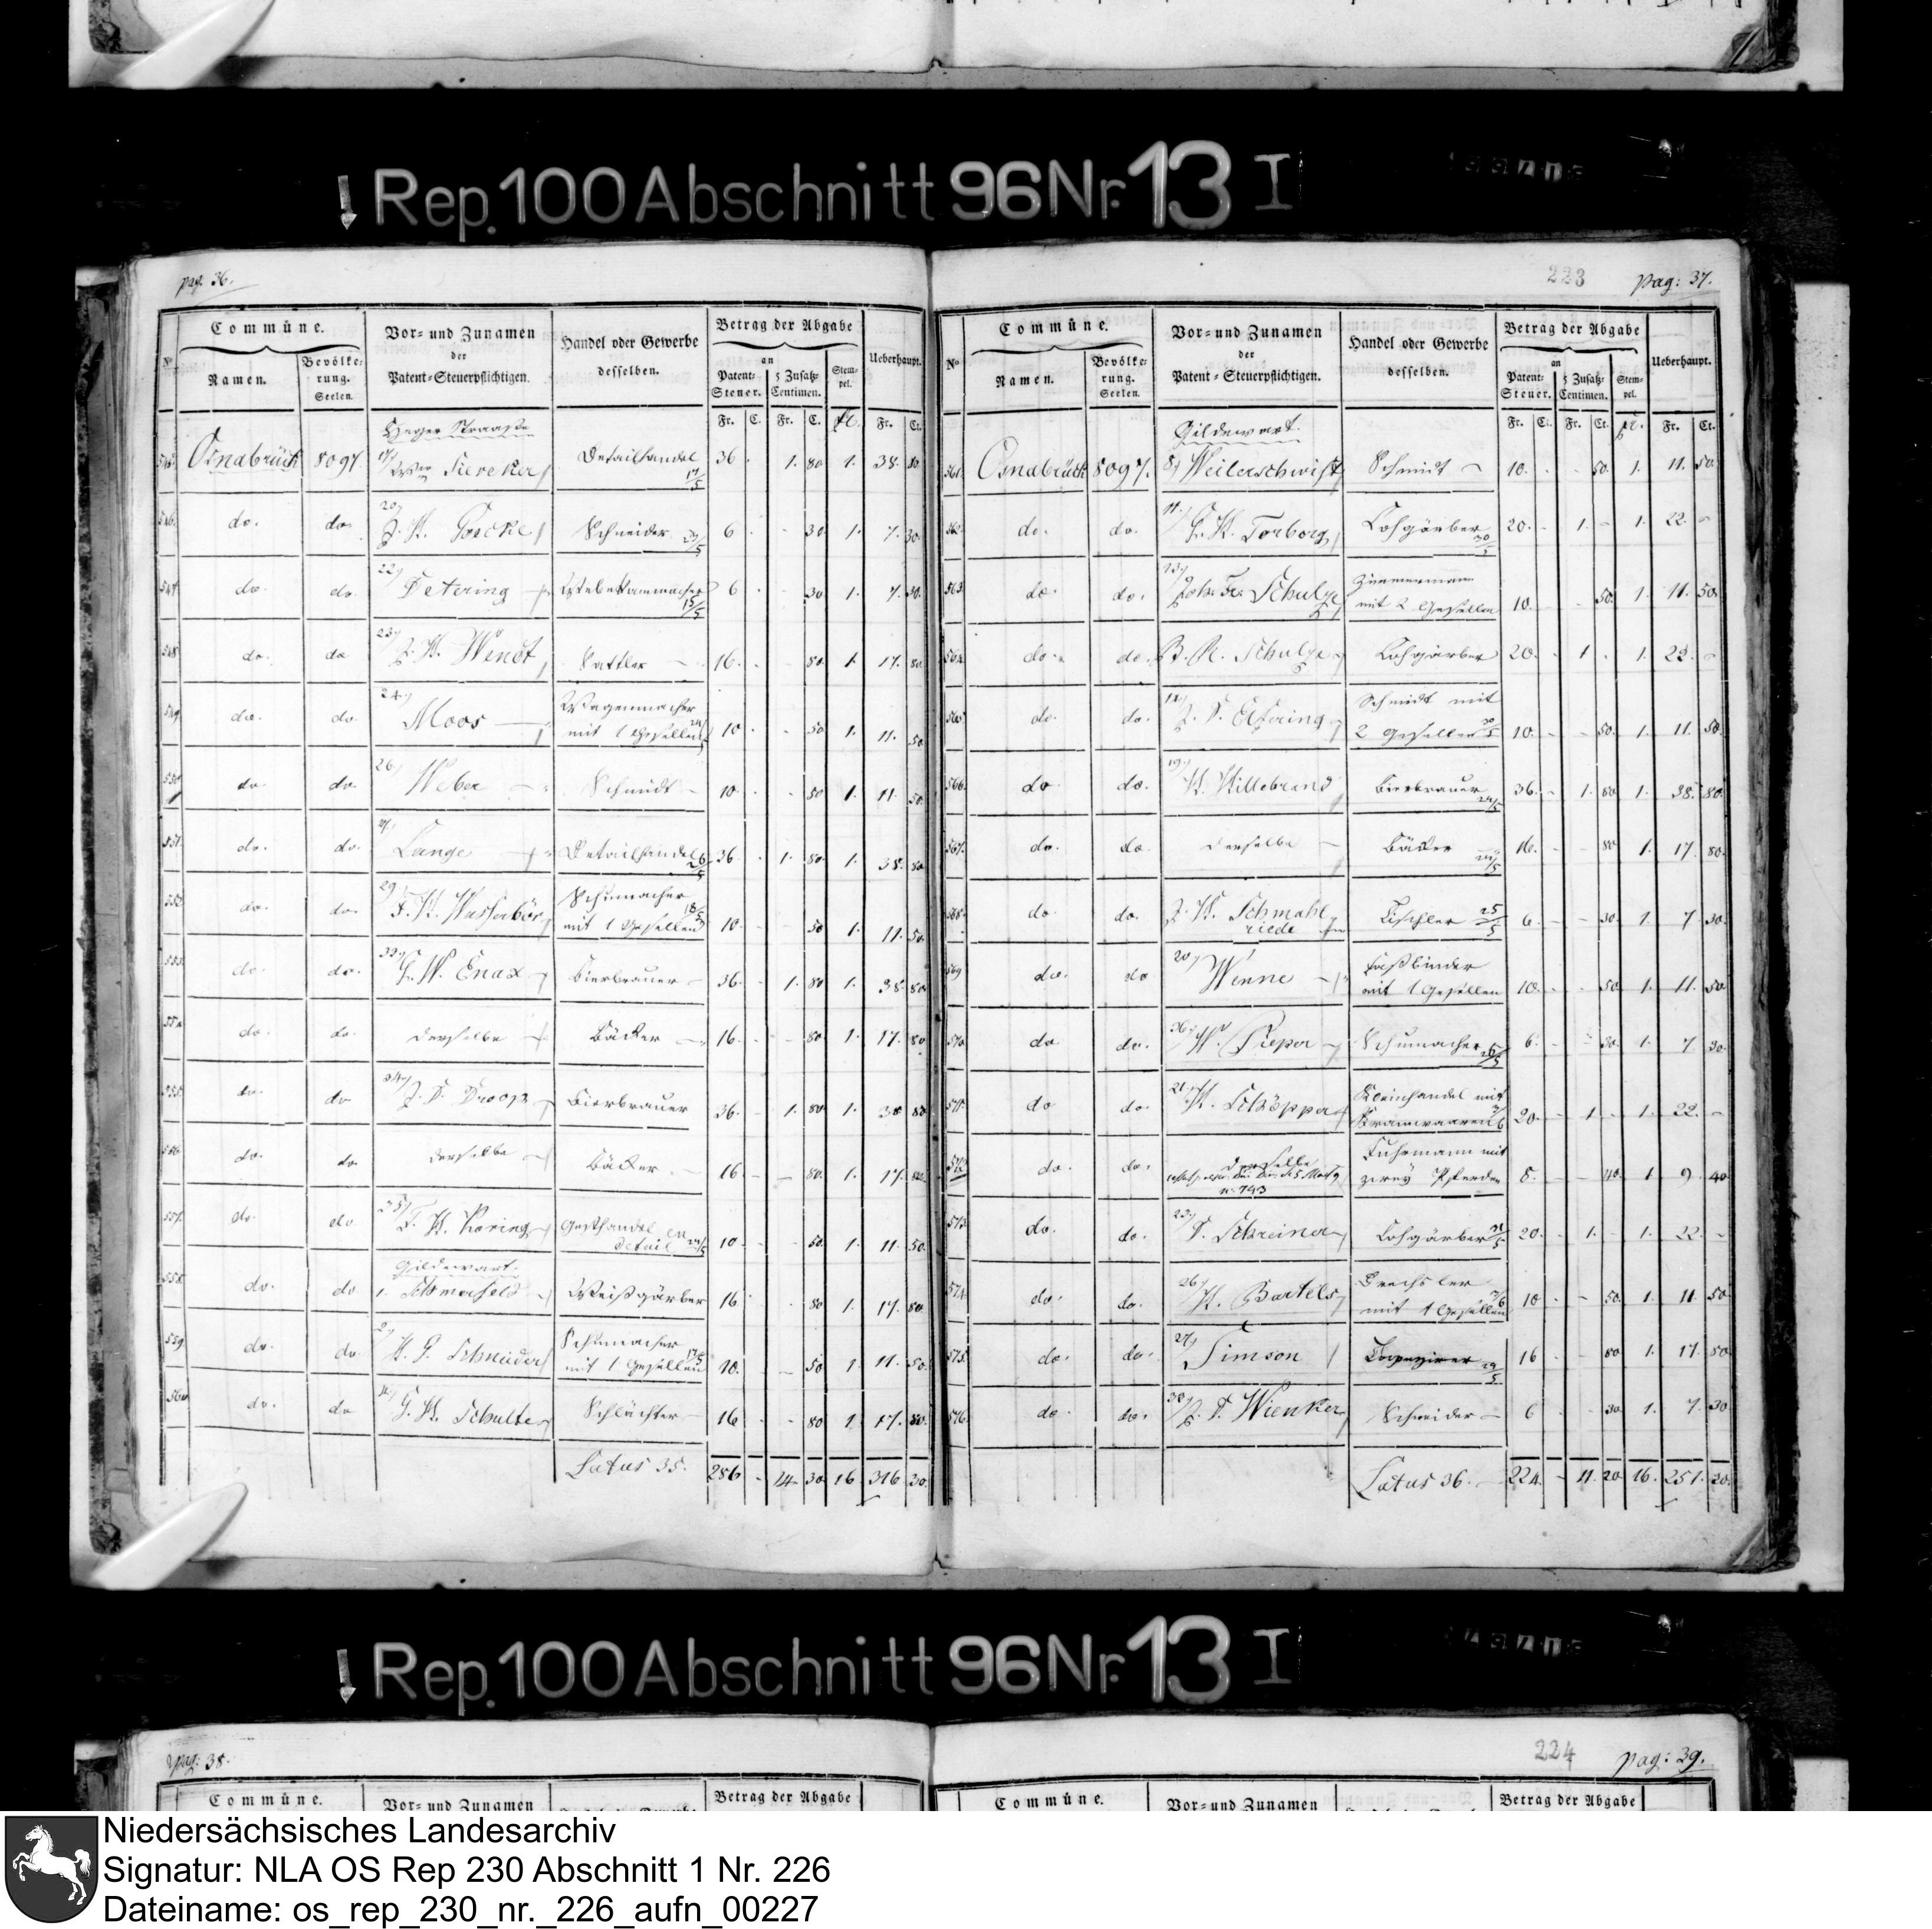 Rep. 100 Abschnitt 96 Nr. 13 I
pag. 36.
Commüne.
Vor- und Zunamen
der
Patent-Steuerpflichtigen.
Handel oder Gewerbe
desselben.
Betrag der Abgabe
Ueberhaupt.
No
Namen.
Bevölke-
rung.
Seelen.
an
Patent-
Steuer.
5 Zusatz-
Centimen.
Stem-
pel.
Fr. C. Fr. C. Fr. Ct.
Heger Straasse
Osnabrück 8097. Detailhandel 17/5 36 1. 80 1. 38. 80
546. do. do. 20) Schneider 6 30 1. 7. 30.
547 do. do. 22) Detering 6 30 1. 7. 30.
548 do. do 23) J. H. Wendt Sattler 16. 80 1. 17. 80
549 do. do. 24) Moos Wagenmacher
mit 1 Gesellen 10 50 1. 11. 50
550 do. do. 26) Weber Schmidt 10 50 1. 11. 50
551. do. do. Lange Detailhandel 36 1. 80. 1. 38. 80
552 do. do. 29 Schumacher
mit 1 Gesellen 10. 50 1. 11. 50.
553 do. do. 33) G. W. Enax Bierbrauer 36. 1. 80 1. 38. 80
554 do. do. derselbe Bäcker 16. 80. 1. 17. 80
555 do. do 34) J. D. Droop Bierbrauer 36. 1. 80 1. 38 80
556 do. do derselbe Bäcker. 16. 80. 1. 17. 80
557. do. do 35) en
detail 10 50. 1. 11. 50.
Gildewart.
558 do. do 1. Weißgärber 16 80 1. 17. 80
559 do. do. 2) H. G. Schneider Schumacher
mit 1 Gesellen 10. 50 1. 11. 50.
560 do. do G. H. Schulte Schlächter 16 80 1. 17. 80.
Latus 35. 286 14 30 16 316 30.
223 pag: 37.
Commüne.
Vor- und Zunamen
der
Patent-Steuerpflichtigen.
Handel oder Gewerbe
desselben.
Betrag der Abgabe
Ueberhaupt.
No
Namen.
Bevölke-
rung.
Seelen.
an
Patent-
Steuer.
5 Zusatz-
Centimen.
Stem-
pel.
Fr. Ct. Fr. Ct. Fr. Ct.
Gildewart.
561 Osnabrück 8097. 8) Weilerschwist Schmidt 10. 50. 1. 11. 50
562 do. do. 11. G. H. Torborg Lohgärber 20. 1. 1. 22.
563 do. do. 13) Joh. Fr. Schulze Zimmermann
mit 2 Gesellen 10. 50. 1. 11. 50
564 do. do. Schulze Lohgärber 20. 1. 1. 22.
565 do. do. Schmidt mit
2 Gesellen 10. 50. 1. 11. 50
566 do. do. 19) H. Hillebrand Bierbrauer 36. 1. 80 1. 38. 80
567. do. do. derselbe Bäcker 16. 80 1. 17 80.
568 do. do. J. H. Schmahl
riede Tischler 25/5 6. 30. 1. 7 30.
569 do. do 20) Wenne Faßbinder
mit 1 Gesellen 10. 50. 1. 11. 50
570 do do. Pieper Schumacher 6. 30. 1. 7 30.
571. do do. 21. H. Schöpper Kleinhandel mit
Kramwaaren 20. 1. 1. 22.
572 do. do. derselbe
n. 793 Fuhrmann mit
zwey Pferden 8. 40. 1 9 40
573 do. do. 23) D. Schreiner Lohgärber 31/5 20. 1. 1. 22.
574. do. do. 26) H. Bartels Drechsler
mit 1 Gesellen 10 50. 1. 11. 50
575. do. do. 27) Simson 29/5 16 80 1. 17. 80
576. do. do. Wienker Schneider 6 30 1. 7 30
Latus 36. 224. 11. 20 16. 251. 20.
Rep. 100 Abschnitt 96 Nr. 13 I
pag: 38.
224 pag: 39.
Commüne.
Vor- und Zunamen
Betrag der Abgabe
Commüne.
Vor- und Zunamen
Betrag der Abgabe
Niedersächsisches Landesarchiv
Signatur: NLA OS Rep 230 Abschnitt 1 Nr. 226
Dateiname: os_rep_230_nr._226_aufn_00227